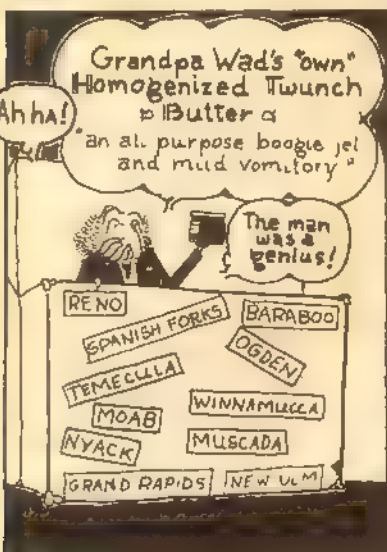 Grandpa Wad's "own"
Homogenized Twunch
Butter
"an all purpose boogie jel
and mild vomitory"
Ah hA!
The man
was a
genius!
RENO
BARABOO
SPANISH FORKS
OGDEN
TEMECULA
MOAB
WINNAMUCCA
NYACK
MUSCADA
GRAND RAPIDS
NEW ULM